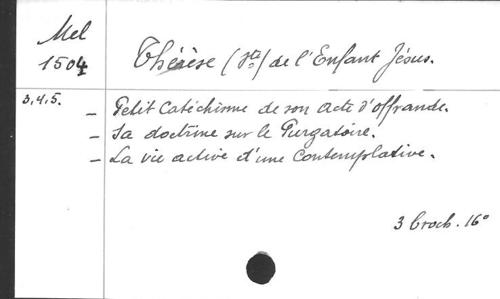 Mel
1504
Thérèse (Ste) de l'Enfant Jésus.
3.4.5.
- Petit Catéchisme de son acte d'offrande.
- Sa doctrine sur le Purgatoire.
- La vie active d'une Contemplative.
3 broch. 16°